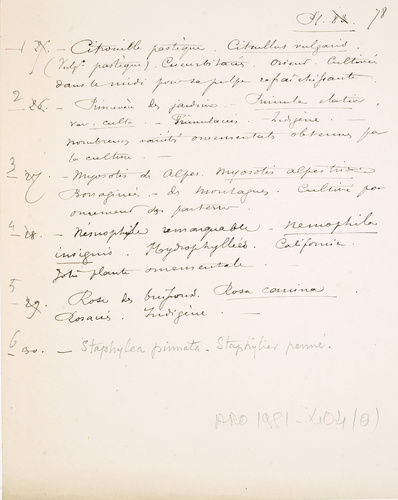 Pl. 82. 78
1 25. — Citrouille pastèque. Citrullus vulgaris.
(Vulgt pastèque) Cucurbitacées. Orient. Cultivée
dans le midi pour sa pulpe rafraîchissante.
2 26. — Primevère des jardins. — Primula elatior,
var. culta. — Primulacées. — Indigène. —
Nombreuses variétés ornementales obtenues par
la culture. —
3 27. — Myosotis des Alpes. Myosotis alpestris.
Borraginées. — des montagnes. Cultivé pour
ornement des parterres.
4 28. — Némophile remarquable. — Nemophila
insignis. Hydrophyllées. Californie.
Jolie plante ornementale —
5 29. Rose des buissons. Rosa canina.
Rosacées. Indigène. —
6 30. — Staphylea pinnata. Staphylier penné.
ARO 1981-404 (8)